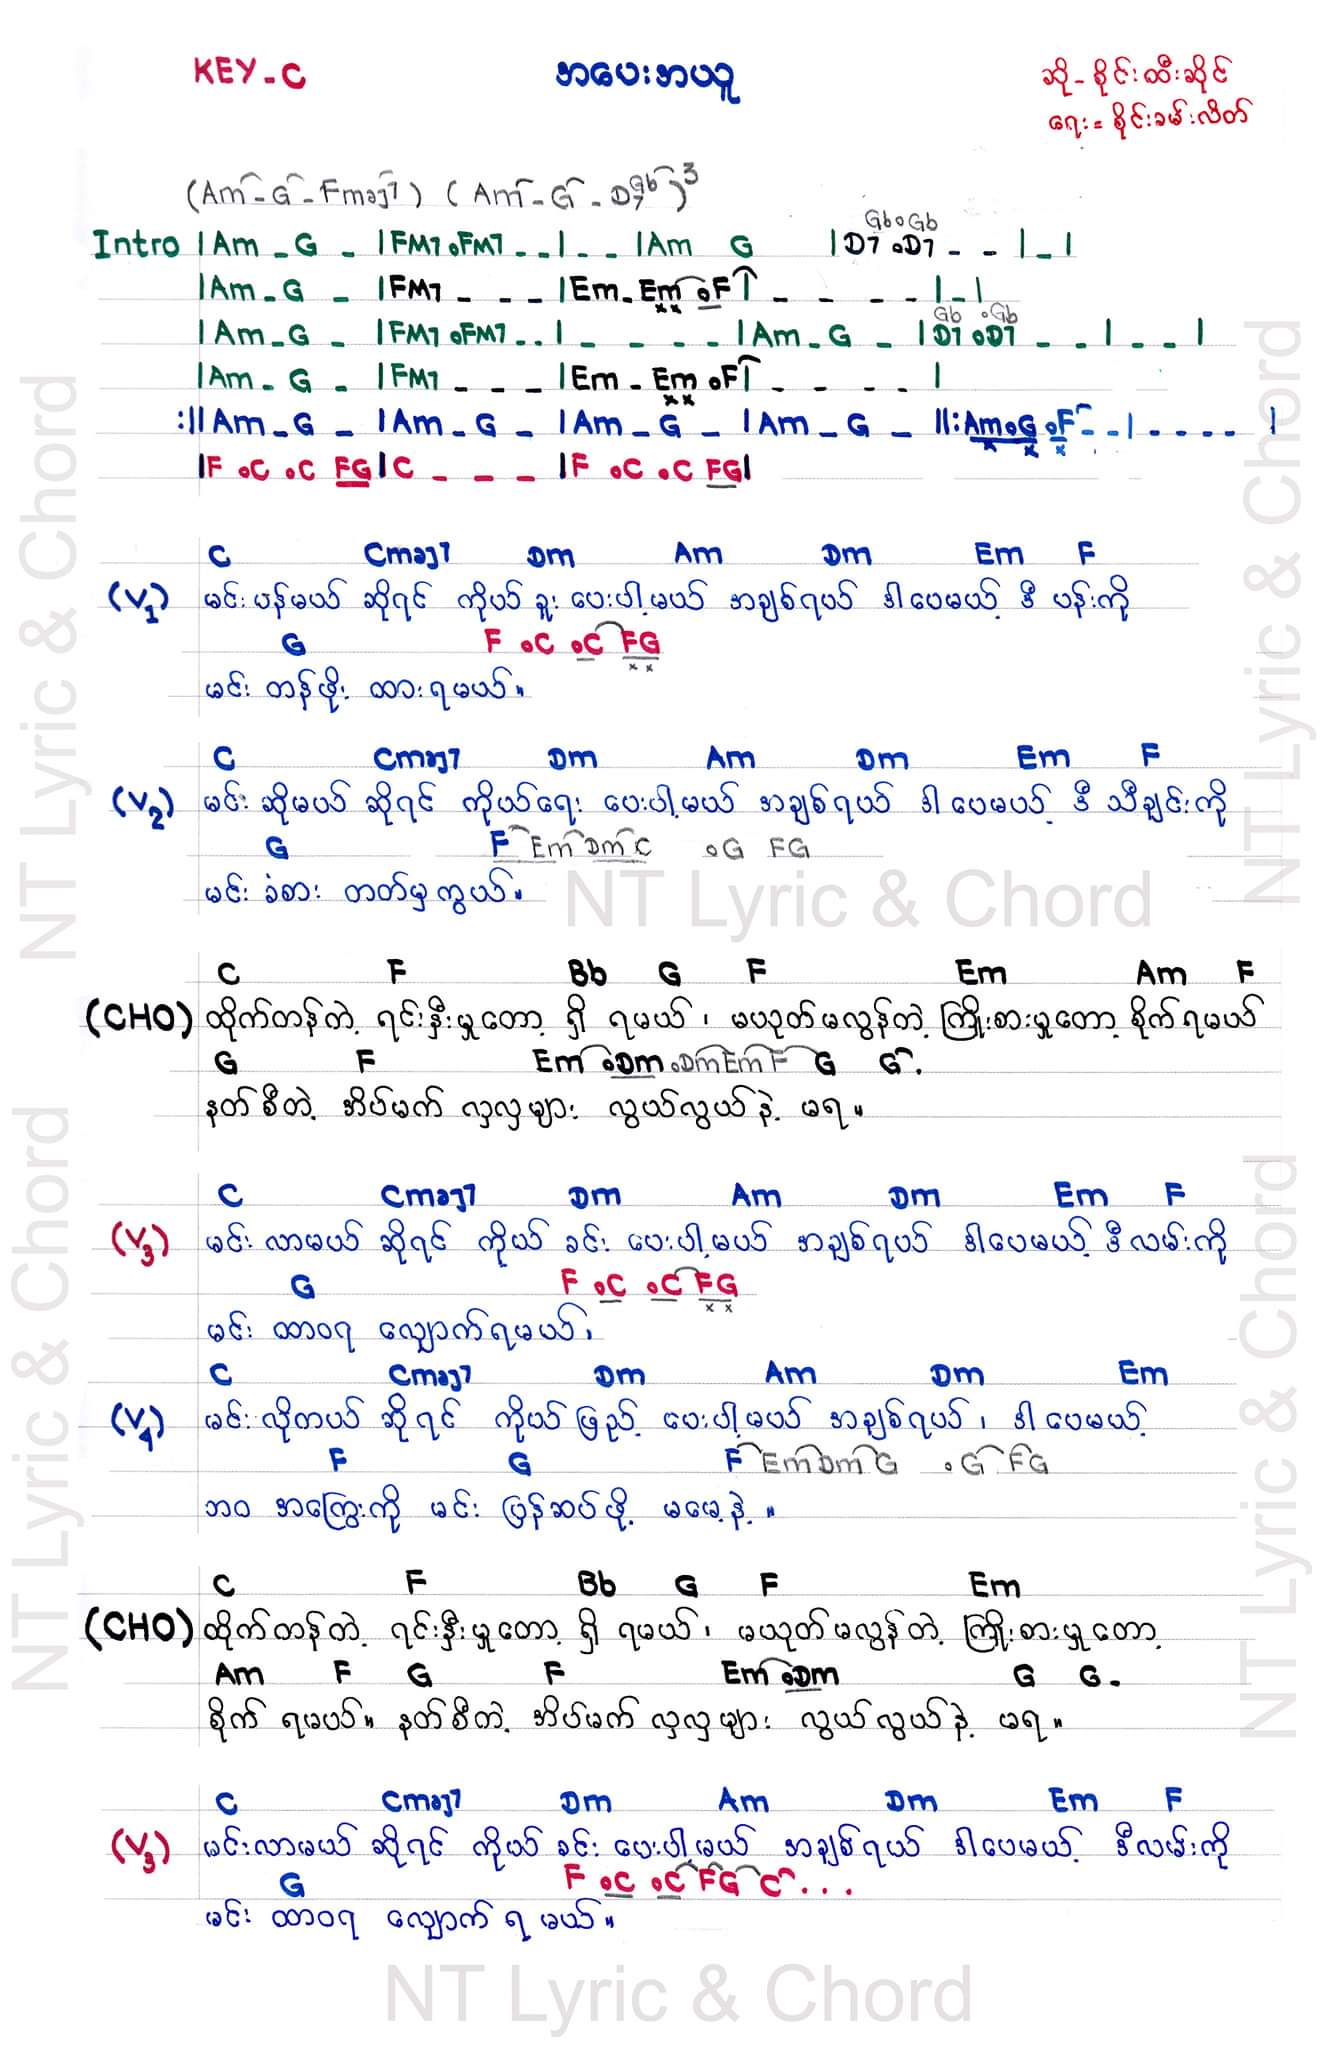 KEY - C
အပေးအယူ
ဆို - စိုင်းထီးဆိုင်
ရေး = စိုင်းခမ်းလိတ်
(Am - G - Fmaj7) (Am - G - D7 Gb)3
Gb o Gb
Intro |Am - G - |FM7 o FM7 - - | - - |Am G |D7 o D7 - - | - |
|Am - G - |FM7 - - - |Em - Em o F | - - - - | - |
Gb o Gb
|Am - G - |FM7 o FM7 - - | - - - - |Am - G - |D7 o D7 - - | - - |
|Am - G - |FM7 - - - |Em - Em o F | - - - - |
:||Am - G - |Am - G - |Am - G - |Am - G - ||: Am o G o F - - | - - - - |
|F o C o C FG|C - - - |F o C o C FG|
C Cmaj7 Dm Am Dm Em F
(V1) မင်းပန်မယ် ဆိုရင် ကိုယ် ခူး ပေးပါ့မယ် အချစ်ရယ် ဒါပေမယ့် ဒီ ပန်းကို
G F o C o C FG
မင်း တန်ဖိုး ထားရမယ်။
C Cmaj7 Dm Am Dm Em F
(V2) မင်း ဆိုမယ် ဆိုရင် ကိုယ်ရေး ပေးပါ့မယ် အချစ်ရယ် ဒါပေမယ့် ဒီ သီချင်းကို
G F Em Dm C o G FG
မင်း ခံစား တတ်မှ ကွယ်။
NT Lyric & Chord
C F Bb G F Em Am F
(CHO) ထိုက်တန်တဲ့ ရင်းနှီးမှုတော့ ရှိ ရမယ်၊ မယုတ်မလွန်တဲ့ ကြိုးစားမှုတော့ စိုက်ရမယ်
G F Em o Dm o Dm Em F G G.
နတ်စီတဲ့ အိပ်မက် လှလှများ လွယ်လွယ်နဲ့ မရ။
C Cmaj7 Dm Am Dm Em F
(V3) မင်း လာမယ် ဆိုရင် ကိုယ် ခင်း ပေးပါ့မယ် အချစ်ရယ် ဒါပေမယ့် ဒီလမ်းကို
G F o C o C FG
မင်း ထာဝရ လျှောက်ရမယ်၊
C Cmaj7 Dm Am Dm Em
(V4) မင်းလိုတယ် ဆိုရင် ကိုယ်ဖြည့် ပေးပါ့မယ် အချစ်ရယ်၊ ဒါပေမယ့်
F G F Em Dm G o G FG
ဘဝ အကြွေးကို မင်း ပြန်ဆပ်ဖို့ မမေ့နဲ့။
C F Bb G F Em
(CHO) ထိုက်တန်တဲ့ ရင်းနှီးမှုတော့ ရှိ ရမယ်၊ မယုတ်မလွန်တဲ့ ကြိုးစားမှုတော့
Am F G F Em o Dm G G.
စိုက် ရမယ်။ နတ်စီတဲ့ အိပ်မက် လှလှများ လွယ်လွယ်နဲ့ မရ။
C Cmaj7 Dm Am Dm Em F
(V3) မင်းလာမယ် ဆိုရင် ကိုယ် ခင်း ပေးပါ့မယ် အချစ်ရယ် ဒါပေမယ့် ဒီလမ်းကို
G F o C o C FG C...
မင်း ထာဝရ လျှောက် ရ မယ်။
NT Lyric & Chord
NT Lyric & Chord
NT Lyric & Chord
NT Lyric & Chord
NT Lyric & Chord